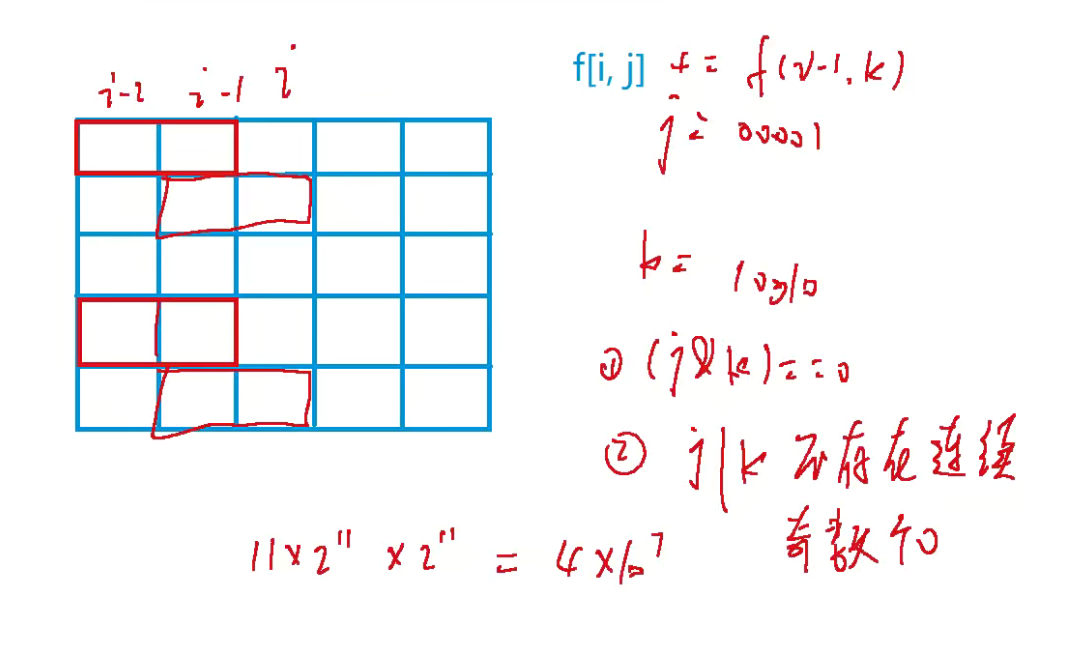 i-2 i-1 i
f[i, j] += f(i-1, k)
j = 00001
k = 10010
① (j&k)==0
② j|k 不存在连续
奇数个0
11×2¹¹ ×2¹¹ = 4×10⁷